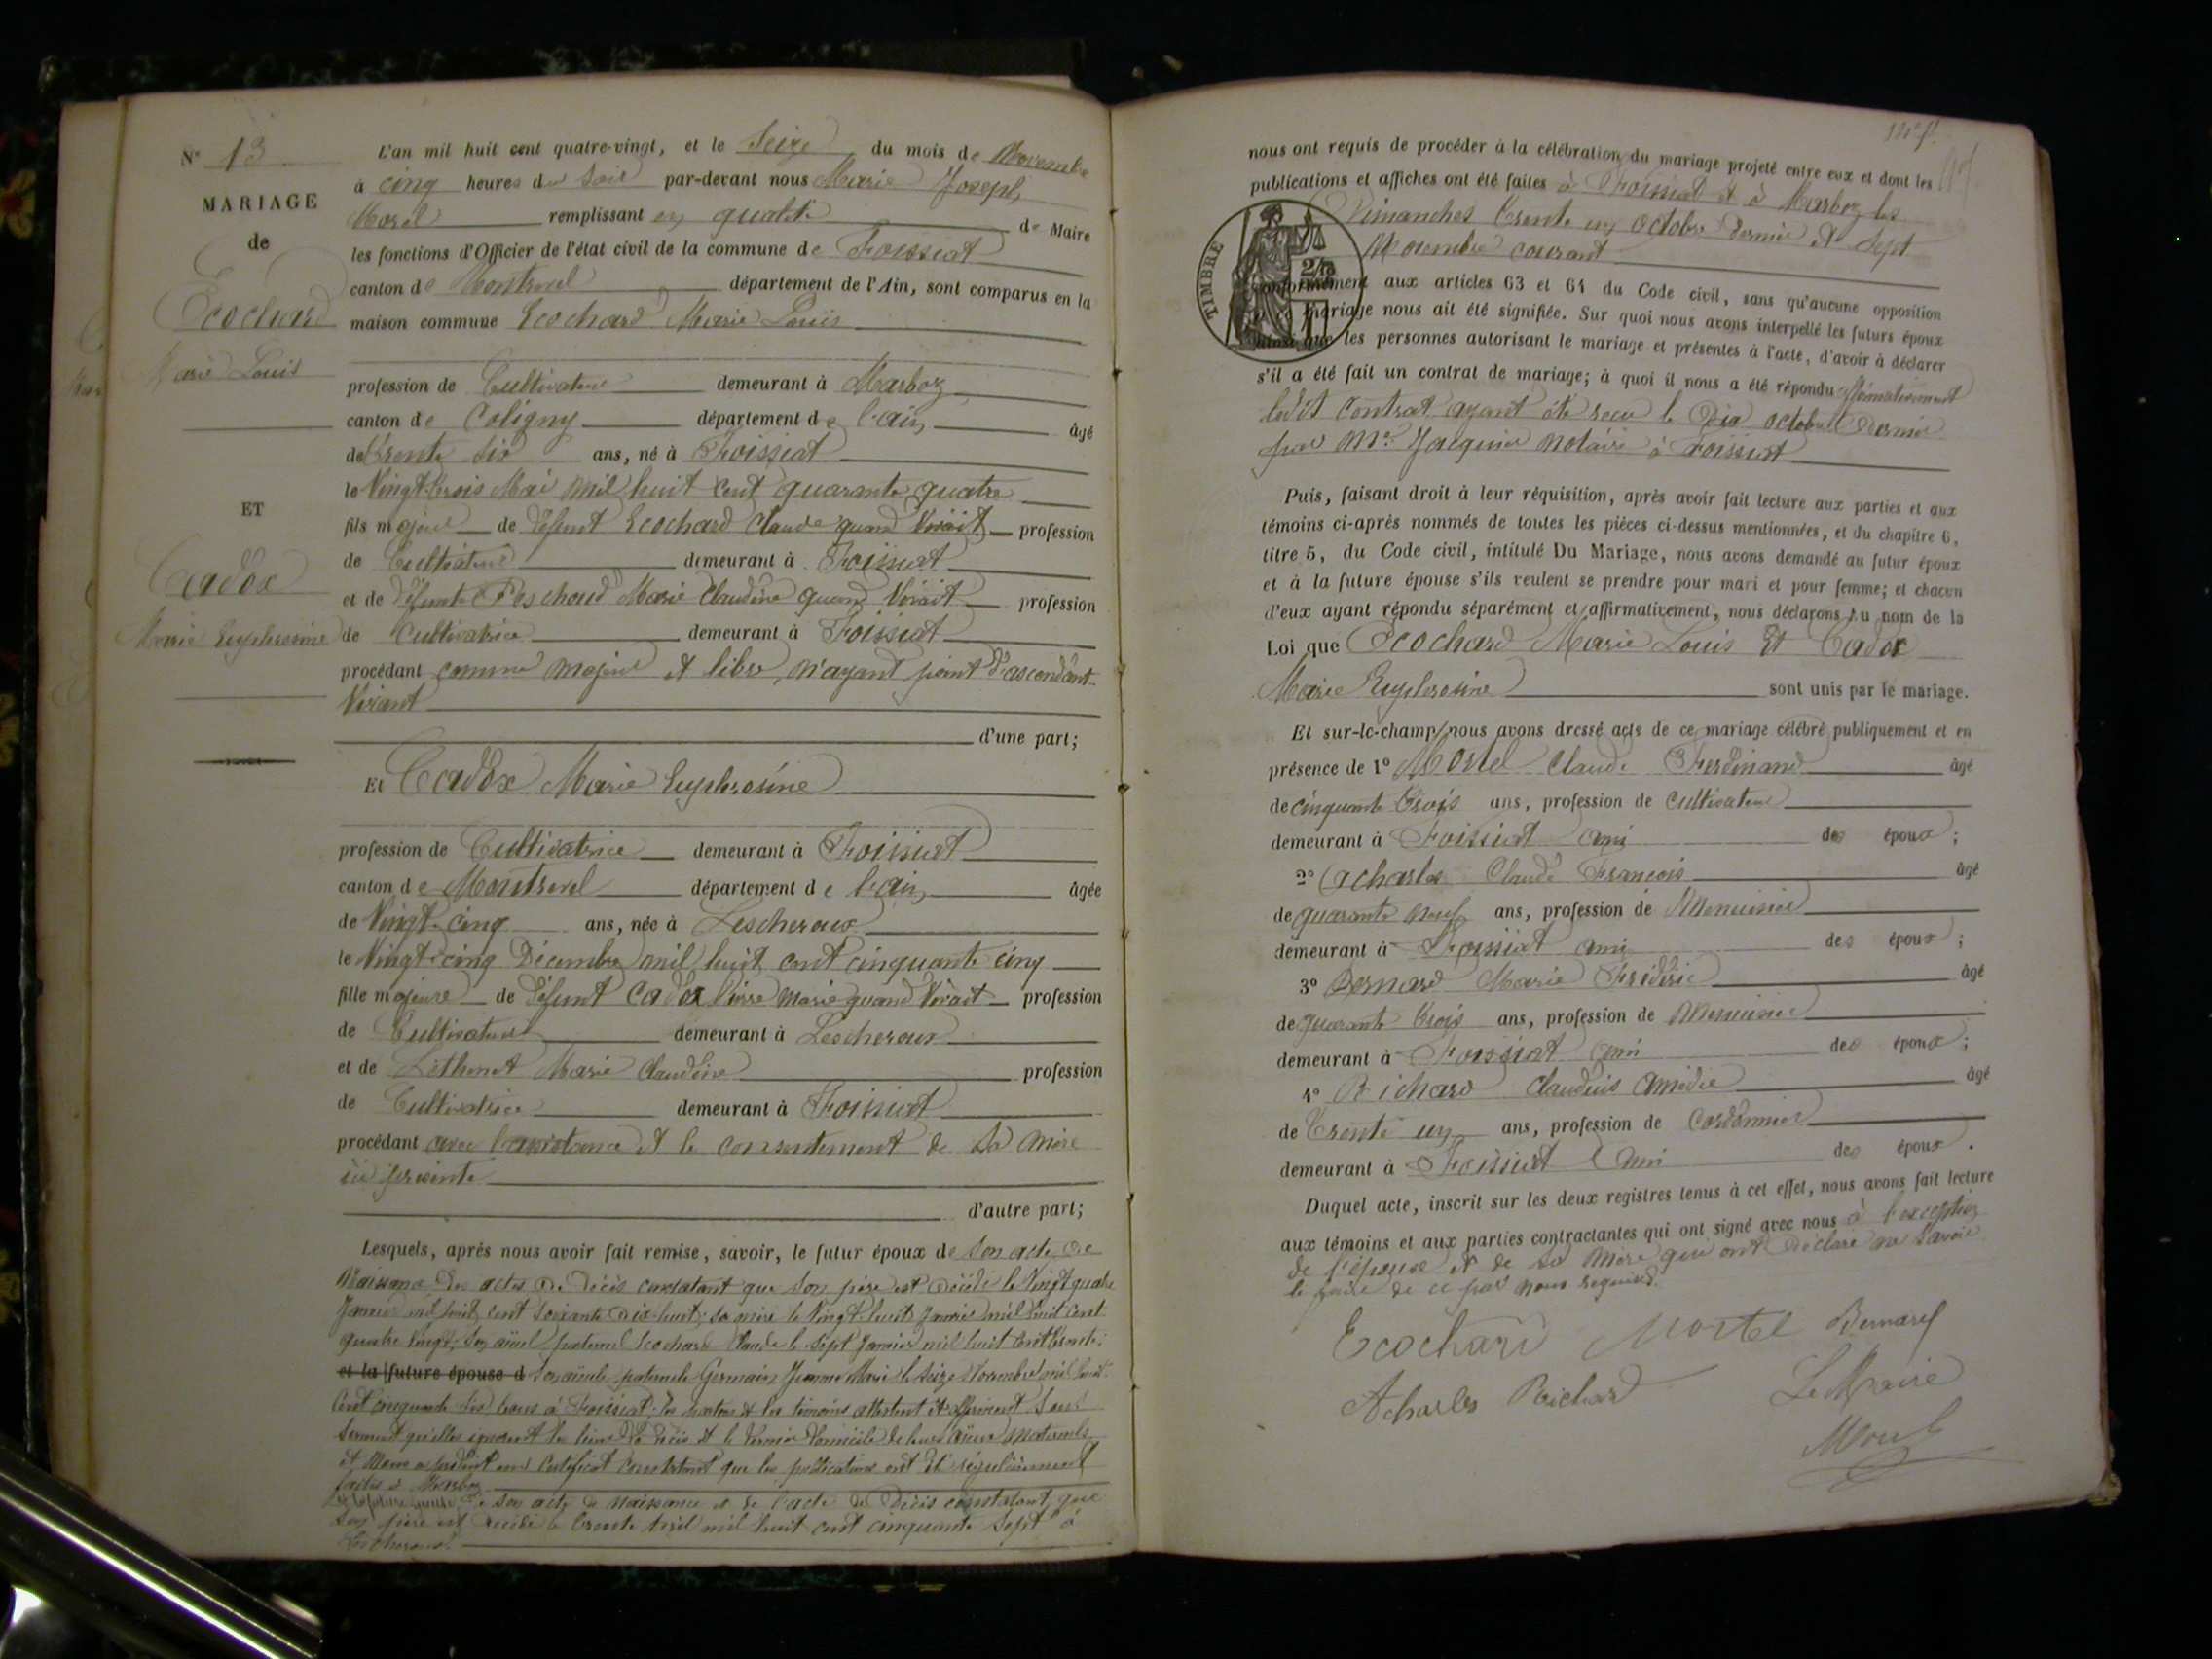 N° 13
MARIAGE
de
Ecochard
Marie Louis
ET
Cadox
Marie Euphrosine
L'an mil huit cent quatre-vingt, et le Seize du mois de Novembre
à cinq heures du Soir par-devant nous Marie Joseph
Morel remplissant en qualité de Maire
les fonctions d'Officier de l'état civil de la commune de Foissiat
canton de Montrevel département de l'Ain, sont comparus en la
maison commune Ecochard Marie Louis
profession de Cultivateur demeurant à Marboz
canton de Coligny département de l'ain âgé
de trente six ans, né à Foissiat
le Vingt trois Mai mil huit cent quarante quatre
fils majeur de défunt Ecochard Claude quand Vivait profession
de Cultivateur demeurant à Foissiat
et de défunte Marie Claudine quand Vivait profession
de Cultivatrice demeurant à Foissiat
procédant comme majeur et libre, n'ayant point d'ascendant
Vivant
d'une part;
Et Cadox Marie Euphrosine
profession de Cultivatrice demeurant à Foissiat
canton de Montrevel département de l'ain âgée
de Vingt-cinq ans, née à Lescheroux
le Vingt-cinq Décembre mil huit cent cinquante cinq
fille majeure de défunt Cadox Pierre Marie quand Vivait profession
de Cultivateur demeurant à Lescheroux
et de Marie Claudine profession
de Cultivatrice demeurant à Foissiat
procédant avec l'assistance et le consentement de Sa mère
ici présente
d'autre part;
Lesquels, après nous avoir fait remise, savoir, le futur époux de Son acte de
Naissance des actes de Décès constatant que Son père est décédé le Vingt quatre
Janvier mil huit cent soixante dix-huit; sa mère le Vingt huit Janvier mil huit cent
quatre vingt; Son aïeul paternel Ecochard Claude le Sept Janvier mil huit cent trente;
et la future épouse d Son aïeule paternelle Germain Jeanne Marie le Seize Novembre mil huit
Cent cinquante Six tous à Foissiat; les parties et les témoins attestent et affirment Sous
Serment qu'elles ignorent le lieu de décès et le dernier domicile de leurs aïeux maternels
et un Certificat constatant que les publications ont été régulièrement
faites à Marboz
La future épouse, de son acte de naissance et de l'acte de Décès constatant que
Son père est décédé le trente avril mil huit cent cinquante Sept à
Lescheroux.
nous ont requis de procéder à la célébration du mariage projeté entre eux et dont les
publications et affiches ont été faites à Foissiat et à Marboz les
Dimanches trente un octobre dernier et Sept
Novembre courant
TIMBRE
conformément aux articles 63 et 64 du Code civil, sans qu'aucune opposition
mariage nous ait été signifiée. Sur quoi nous avons interpellé les futurs époux
ainsi que les personnes autorisant le mariage et présentes à l'acte, d'avoir à déclarer
s'il a été fait un contrat de mariage; à quoi il nous a été répondu affirmativement
ledit Contrat ayant été reçu le Dix octobre Dernier
par Me Jacquier notaire à Foissiat
Puis, faisant droit à leur réquisition, après avoir fait lecture aux parties et aux
témoins ci-après nommés de toutes les pièces ci-dessus mentionnées, et du chapitre 6,
titre 5, du Code civil, intitulé Du Mariage, nous avons demandé au futur époux
et à la future épouse s'ils veulent se prendre pour mari et pour femme; et chacun
d'eux ayant répondu séparément et affirmativement, nous déclarons au nom de la
Loi que Ecochard Marie Louis Et Cadox
Marie Euphrosine sont unis par le mariage.
Et sur-le-champ nous avons dressé acte de ce mariage célébré publiquement et en
présence de 1° Mortel Claude Ferdinand âgé
de cinquante trois ans, profession de Cultivateur
demeurant à Foissiat ami des époux;
2° Acharles Claude François âgé
de quarante neuf ans, profession de Menuisier
demeurant à Foissiat ami des époux;
3° Bernard Marie Frédéric âgé
de quarante trois ans, profession de Menuisier
demeurant à Foissiat ami des époux;
4° Richard Claudius Amédée âgé
de trente un ans, profession de Cordonnier
demeurant à Foissiat ami des époux.
Duquel acte, inscrit sur les deux registres tenus à cet effet, nous avons fait lecture
aux témoins et aux parties contractantes qui ont signé avec nous à l'exception
de l'épouse et de sa mère qui ont déclaré ne Savoir
le faire de ce par nous requises.
Ecochard Mortel Bernard
Acharles Richard Le Maire
Morel